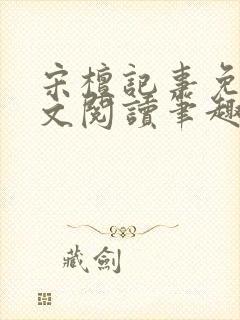 宋檀記事免
文閱讀筆趣
藏劍